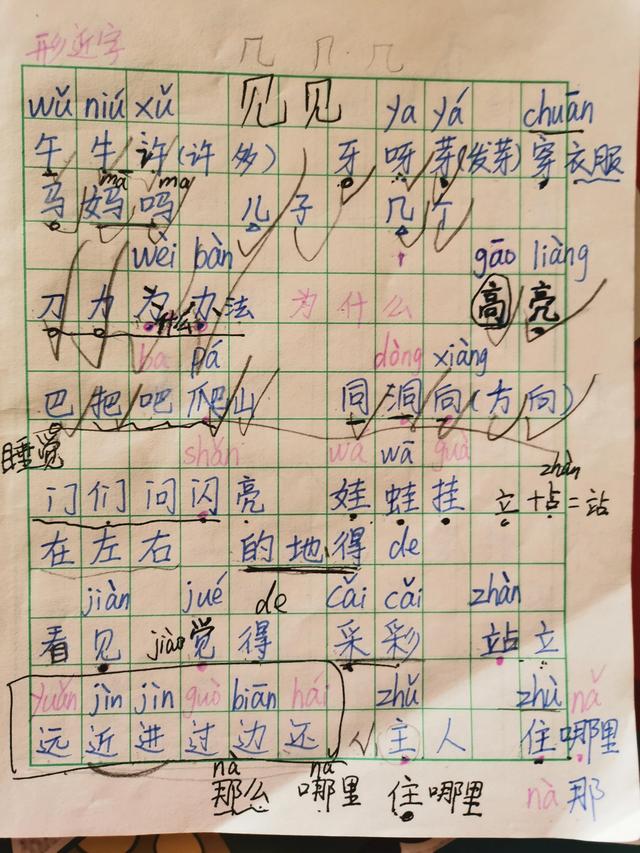 形近字 几 几 几
wǔ niú xǔ 见 见 ya yá chuān
午 牛 许(许多) 牙 呀 芽(发芽) 穿衣服
mā ma
马 妈 吗 儿子 几个
wèi bàn gāo liàng
刀 力 为 办法 为什么 高 亮
什么
ba pá dòng xiàng
巴 把 吧 爬山 同 洞 向(方向)
睡觉 shǎn wa wā guà zhàn
门 们 问 闪亮 娃 蛙 挂 立+占=站
在 左 右 的 地 得 de
jiàn jué de cǎi cǎi zhàn
看见 jiào 觉得 采 彩 站立
yuǎn jìn jìn guò biān hái zhǔ zhù nǎ
远 近 进 过 边 还 √ 主人 住哪里
nà nǎ
那么 哪里 住哪里 nà 那